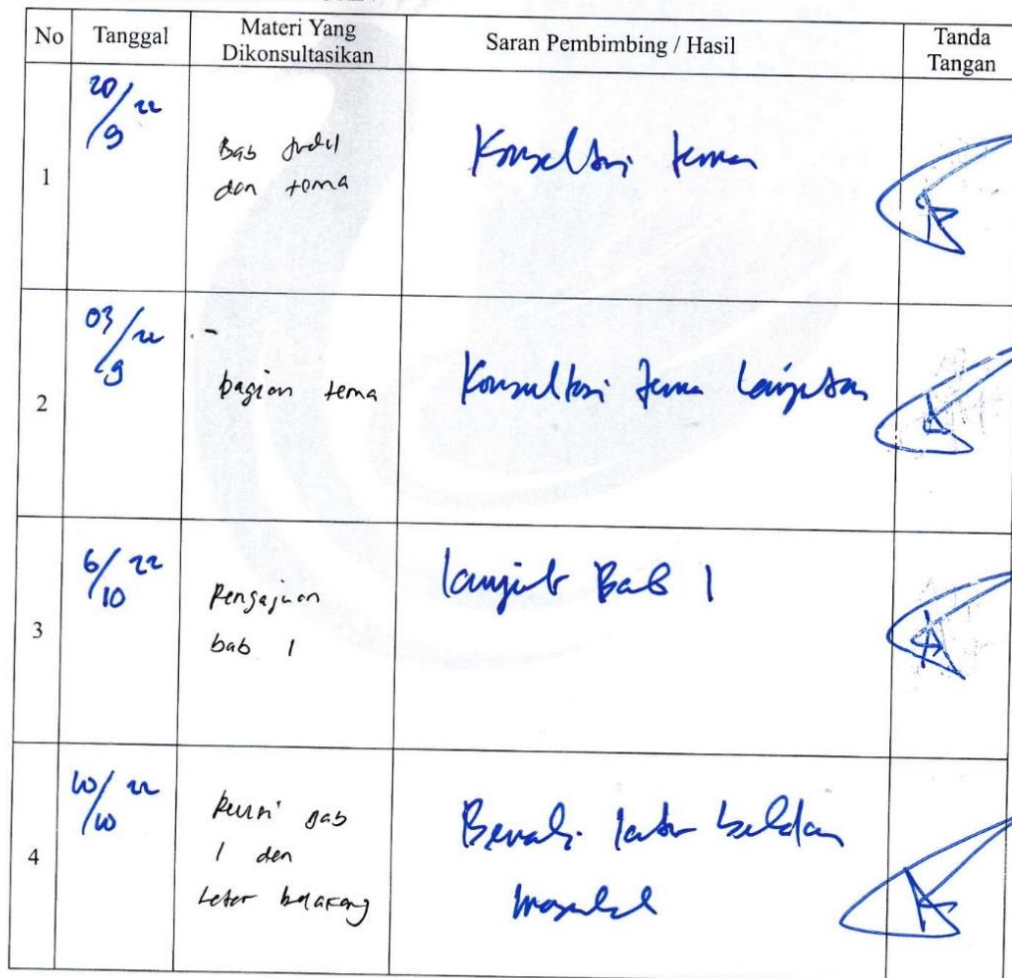 No Tanggal Materi Yang Dikonsultasikan Saran Pembimbing / Hasil Tanda Tangan
1
20/9 22
Bab judul
dan tema
Konsultasi tema
2
03/9 22
-
bagian tema
Konsultasi tema lanjutan
3
6/10 22
Pengajuan
bab 1
lanjut Bab 1
4
10/10 22
Revisi bab
1 dan
Latar belakang
Benahi latar belakang
masalah